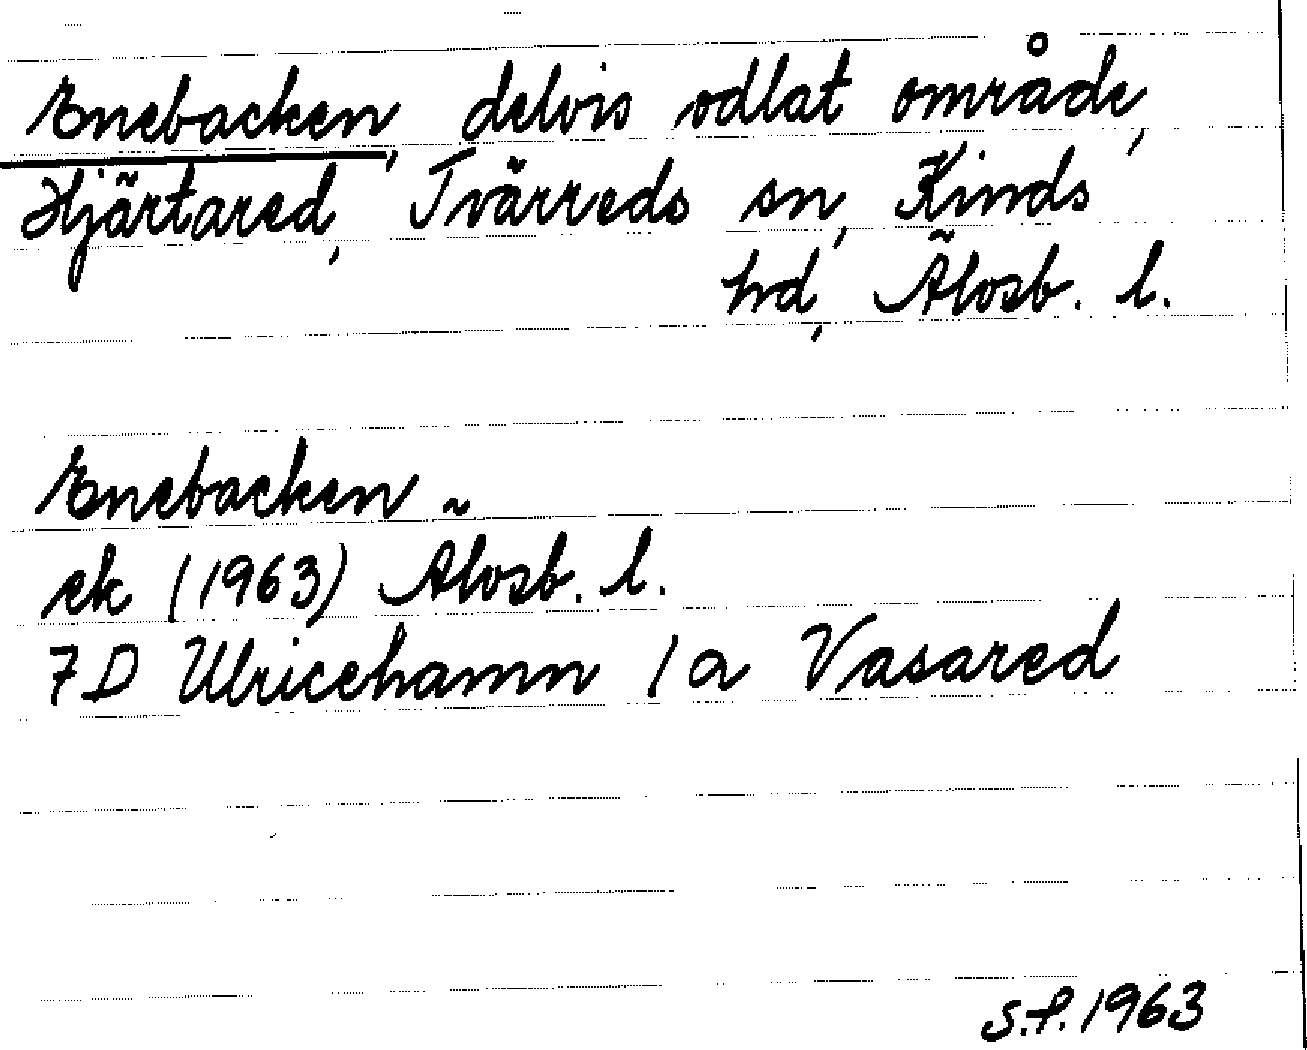 Enebacken, delvis odlat område,
Hjärtared, Tvärreds sn, Kinds
hd, Älvsb. l.
Enebacken
ek (1963) Älvsb. l.
7D Ulricehamn 1a Vasared
S.F. 1963